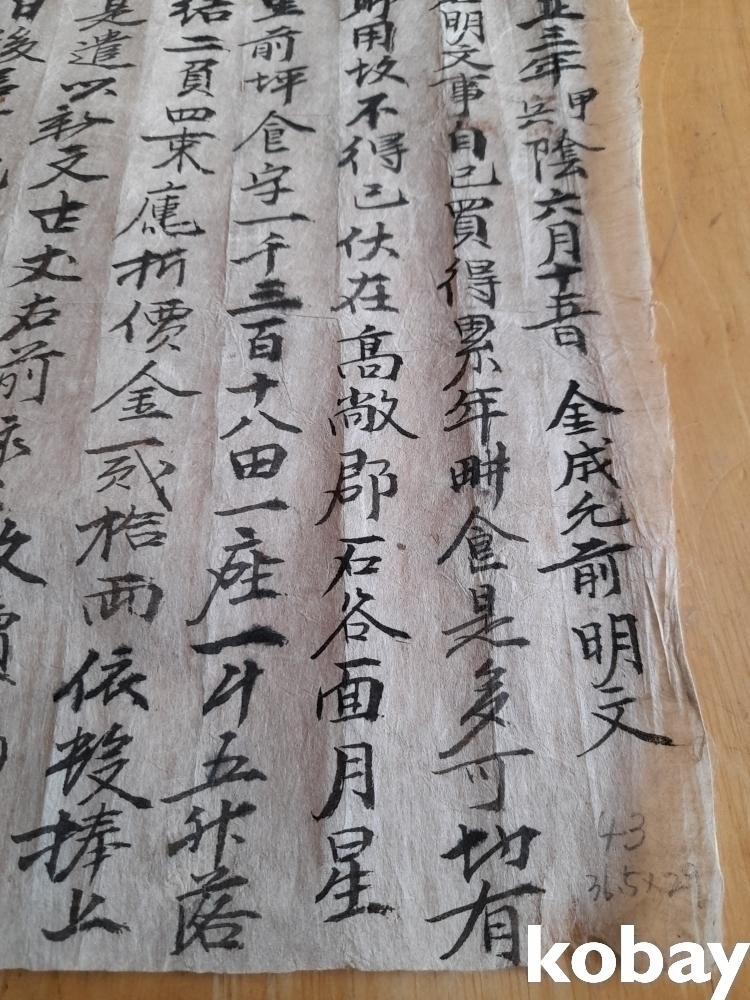 正三年甲寅陰六月十五日 金成允前明文
明文事自己買得累年畊食是多可切有
用故不得已伏在高敞郡石谷面月星
里前坪食字一千三百十八田一座一斗五升落
結二負四束庫折價金貳拾兩依數捧上
是遣以新文丈右前放賣
日後
43
36.5×29
kobay